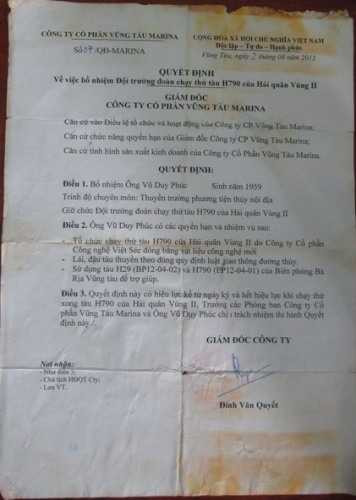 CÔNG TY CỔ PHẦN VŨNG TÀU MARINA
CỘNG HÒA XÃ HỘI CHỦ NGHĨA VIỆT NAM
Độc lập - Tự do - Hạnh phúc
/QĐ-MARINA
Vũng Tàu, ngày 2 tháng 08 năm
QUYẾT ĐỊNH
Về việc bổ nhiệm Đội trưởng đoàn chạy thử tàu H790 của Hải quân Vùng II
GIÁM ĐỐC
CÔNG TY CỔ PHẦN VŨNG TÀU MARINA
Căn cứ vào Điều lệ tổ chức và hoạt động của Công ty CP Vũng Tàu Marina;
Căn cứ chức năng quyền hạn của Giám đốc Công ty CP Vũng Tàu Marina;
Căn cứ tình hình sản xuất kinh doanh của Công ty Cổ Phần Vũng Tàu Marina.
QUYẾT ĐỊNH:
Điều 1. Bổ nhiệm Ông Vũ Duy Phúc Sinh năm 1959
Trình độ chuyên môn: Thuyền trưởng phương tiện thủy nội địa
Giữ chức Đội trưởng đoàn chạy thử tàu H790 của Hải quân Vùng II
Điều 2. Ông Vũ Duy Phúc có các quyền hạn và nhiệm vụ sau:
- Tổ chức chạy thử tàu H790 của Hải quân Vùng II do Công ty Cổ Phần
Công nghệ Việt Séc đóng bằng vật liệu công nghệ mới
- Lái, đậu tàu thuyền theo đúng quy định luật giao thông đường thủy.
- Sử dụng tàu H29 (BP12-04-02) và H790 (BP12-04-01) của Biên phòng Bà
Rịa Vũng tàu để trợ giúp.
Điều 3. Quyết định này có hiệu lực kể từ ngày ký và hết hiệu lực khi chạy thử
xong tàu H790 của Hải quân Vùng II, Trưởng các Phòng ban Công ty Cổ
phần Vũng Tàu Marina và Ông Vũ Duy Phúc chịu trách nhiệm thi hành Quyết
định này./.
GIÁM ĐỐC CÔNG TY
Nơi nhận:
- Như điều 3;
- Chủ tịch HĐQT Cty;
- Lưu VT.
Đinh Văn Quyết